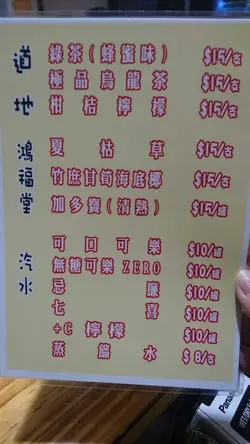 道地
綠茶(蜂蜜味) $15/支
極品烏龍茶 $15/支
柑桔檸檬 $15/支
鴻福堂
夏枯草 $15/支
竹庶甘筍海底椰 $15/支
加多寶(清熱) $15/罐
汽水
可口可樂 $10/罐
無糖可樂 ZERO $10/罐
忌廉 $10/罐
七喜 $10/罐
+C 檸檬 $10/罐
蒸餾水 $8/支